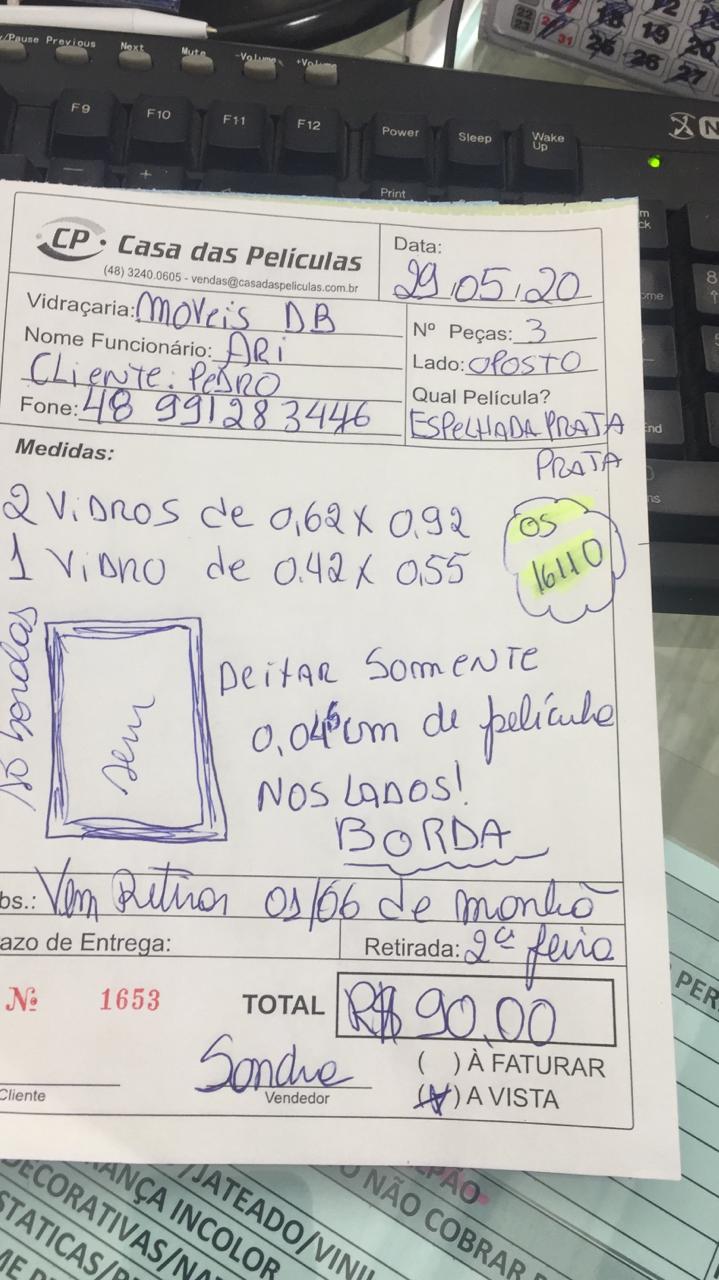 /Pause Previous Next Mute -Volume +Volume
F9 F10 F11 F12 Power Sleep Wake Up
Print
CP • Casa das Películas
(48) 3240.0605 - vendas@casadaspeliculas.com.br
Data:
29/05/20
Vidraçaria: MOVEIS DB
Nome Funcionário: ARI
CLIENTE: PEDRO
Fone: 48 991283446
Nº Peças: 3
Lado: OPOSTO
Qual Película?
ESPELHADA PRATA
PRATA
Medidas:
2 VIDROS de 0,62 X 0,92
1 VIDRO de 0.42 X 0,55
OS
16110
SÓ bordas
sem
DEITAR SOMENTE
0,045cm de película
NOS LADOS!
BORDA
bs.: Vem Retirar 01/06 de manhã
azo de Entrega:
Retirada: 2ª feira
Nº 1653
TOTAL R$ 90,00
Sandra
Cliente
Vendedor
( ) À FATURAR
(X) A VISTA
PÃO
RANÇA INCOLOR
/JATEADO/VINI
O NÃO COBRAR
DECORATIVAS/NA
STATICAS/
PER